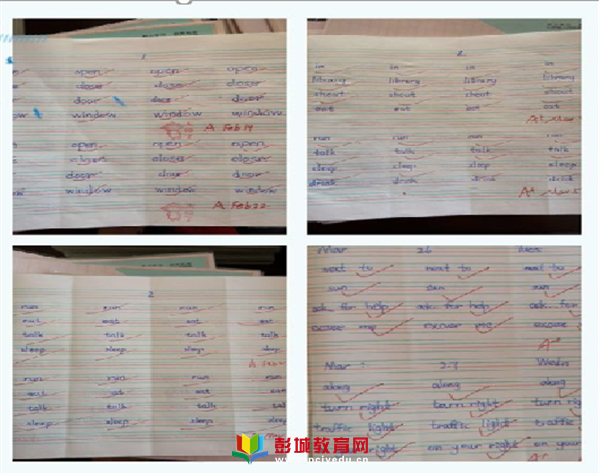 1
open open open
close close closer
door door door
window window window
A Feb 19
open open open
close closer closer
door door door
window window window
A Feb 22
2
in in in in
library library library library
shout shout shout shout
eat eat eat eat
A+
run run run run
talk talk talk talk
sleep sleep sleep sleep
drink drink drink drink
A+
2
run run run run
eat eat eat eat
talk talk talk talk
sleep sleep sleep sleep
A
run run run run
eat eat eat eat
talk talk talk talk
sleep sleep sleep
Mar 26
next to next to next to
sun sun sun
ask for help ask for help ask for
excuse me excuse me excuse
A+
Mar 27
along along along
turn right turn right turn
traffic light traffic light traffic
right on your right on your
彭城教育网